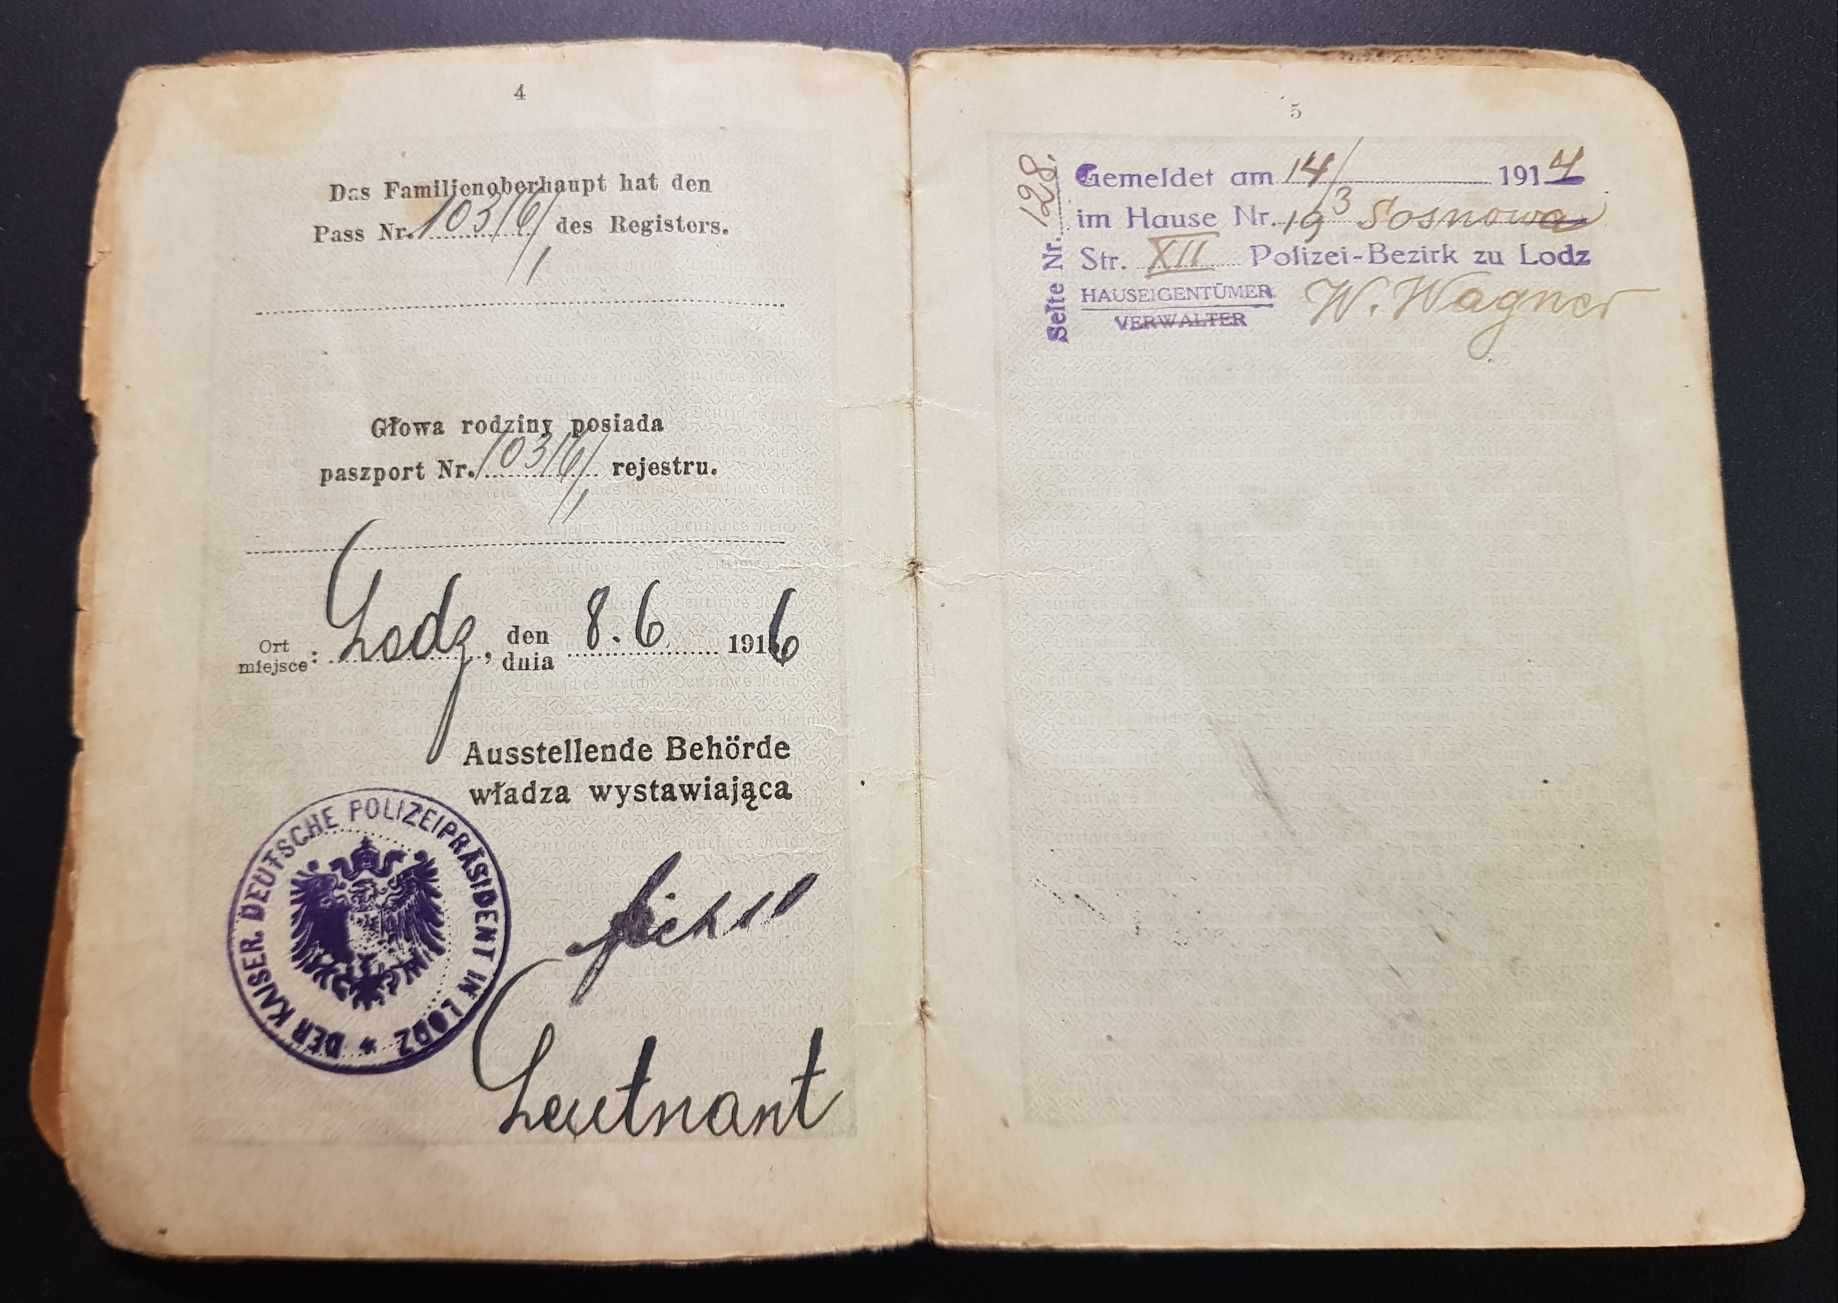 4
Das Familienoberhaupt hat den
Pass Nr. 10316/1 des Registers.
Głowa rodziny posiada
paszport Nr. 10316/1 rejestru.
Ort
miejsce : Lodz, den
dnia 8.6 1916
Ausstellende Behörde
władza wystawiająca
DER KAISER. DEUTSCHE POLIZEIPRÄSIDENT IN LODZ *
Leutnant
5
Seite Nr. 128.
Gemeldet am 14/3 1917
im Hause Nr. 19 Sosnowa
Str. XII Polizei-Bezirk zu Lodz
HAUSEIGENTÜMER W. Wagner
VERWALTER